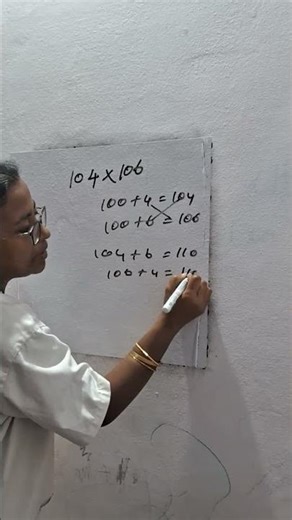 104 × 106
100 + 4 = 104
100 + 6 = 106
104 + 6 = 110
106 + 4 = 11